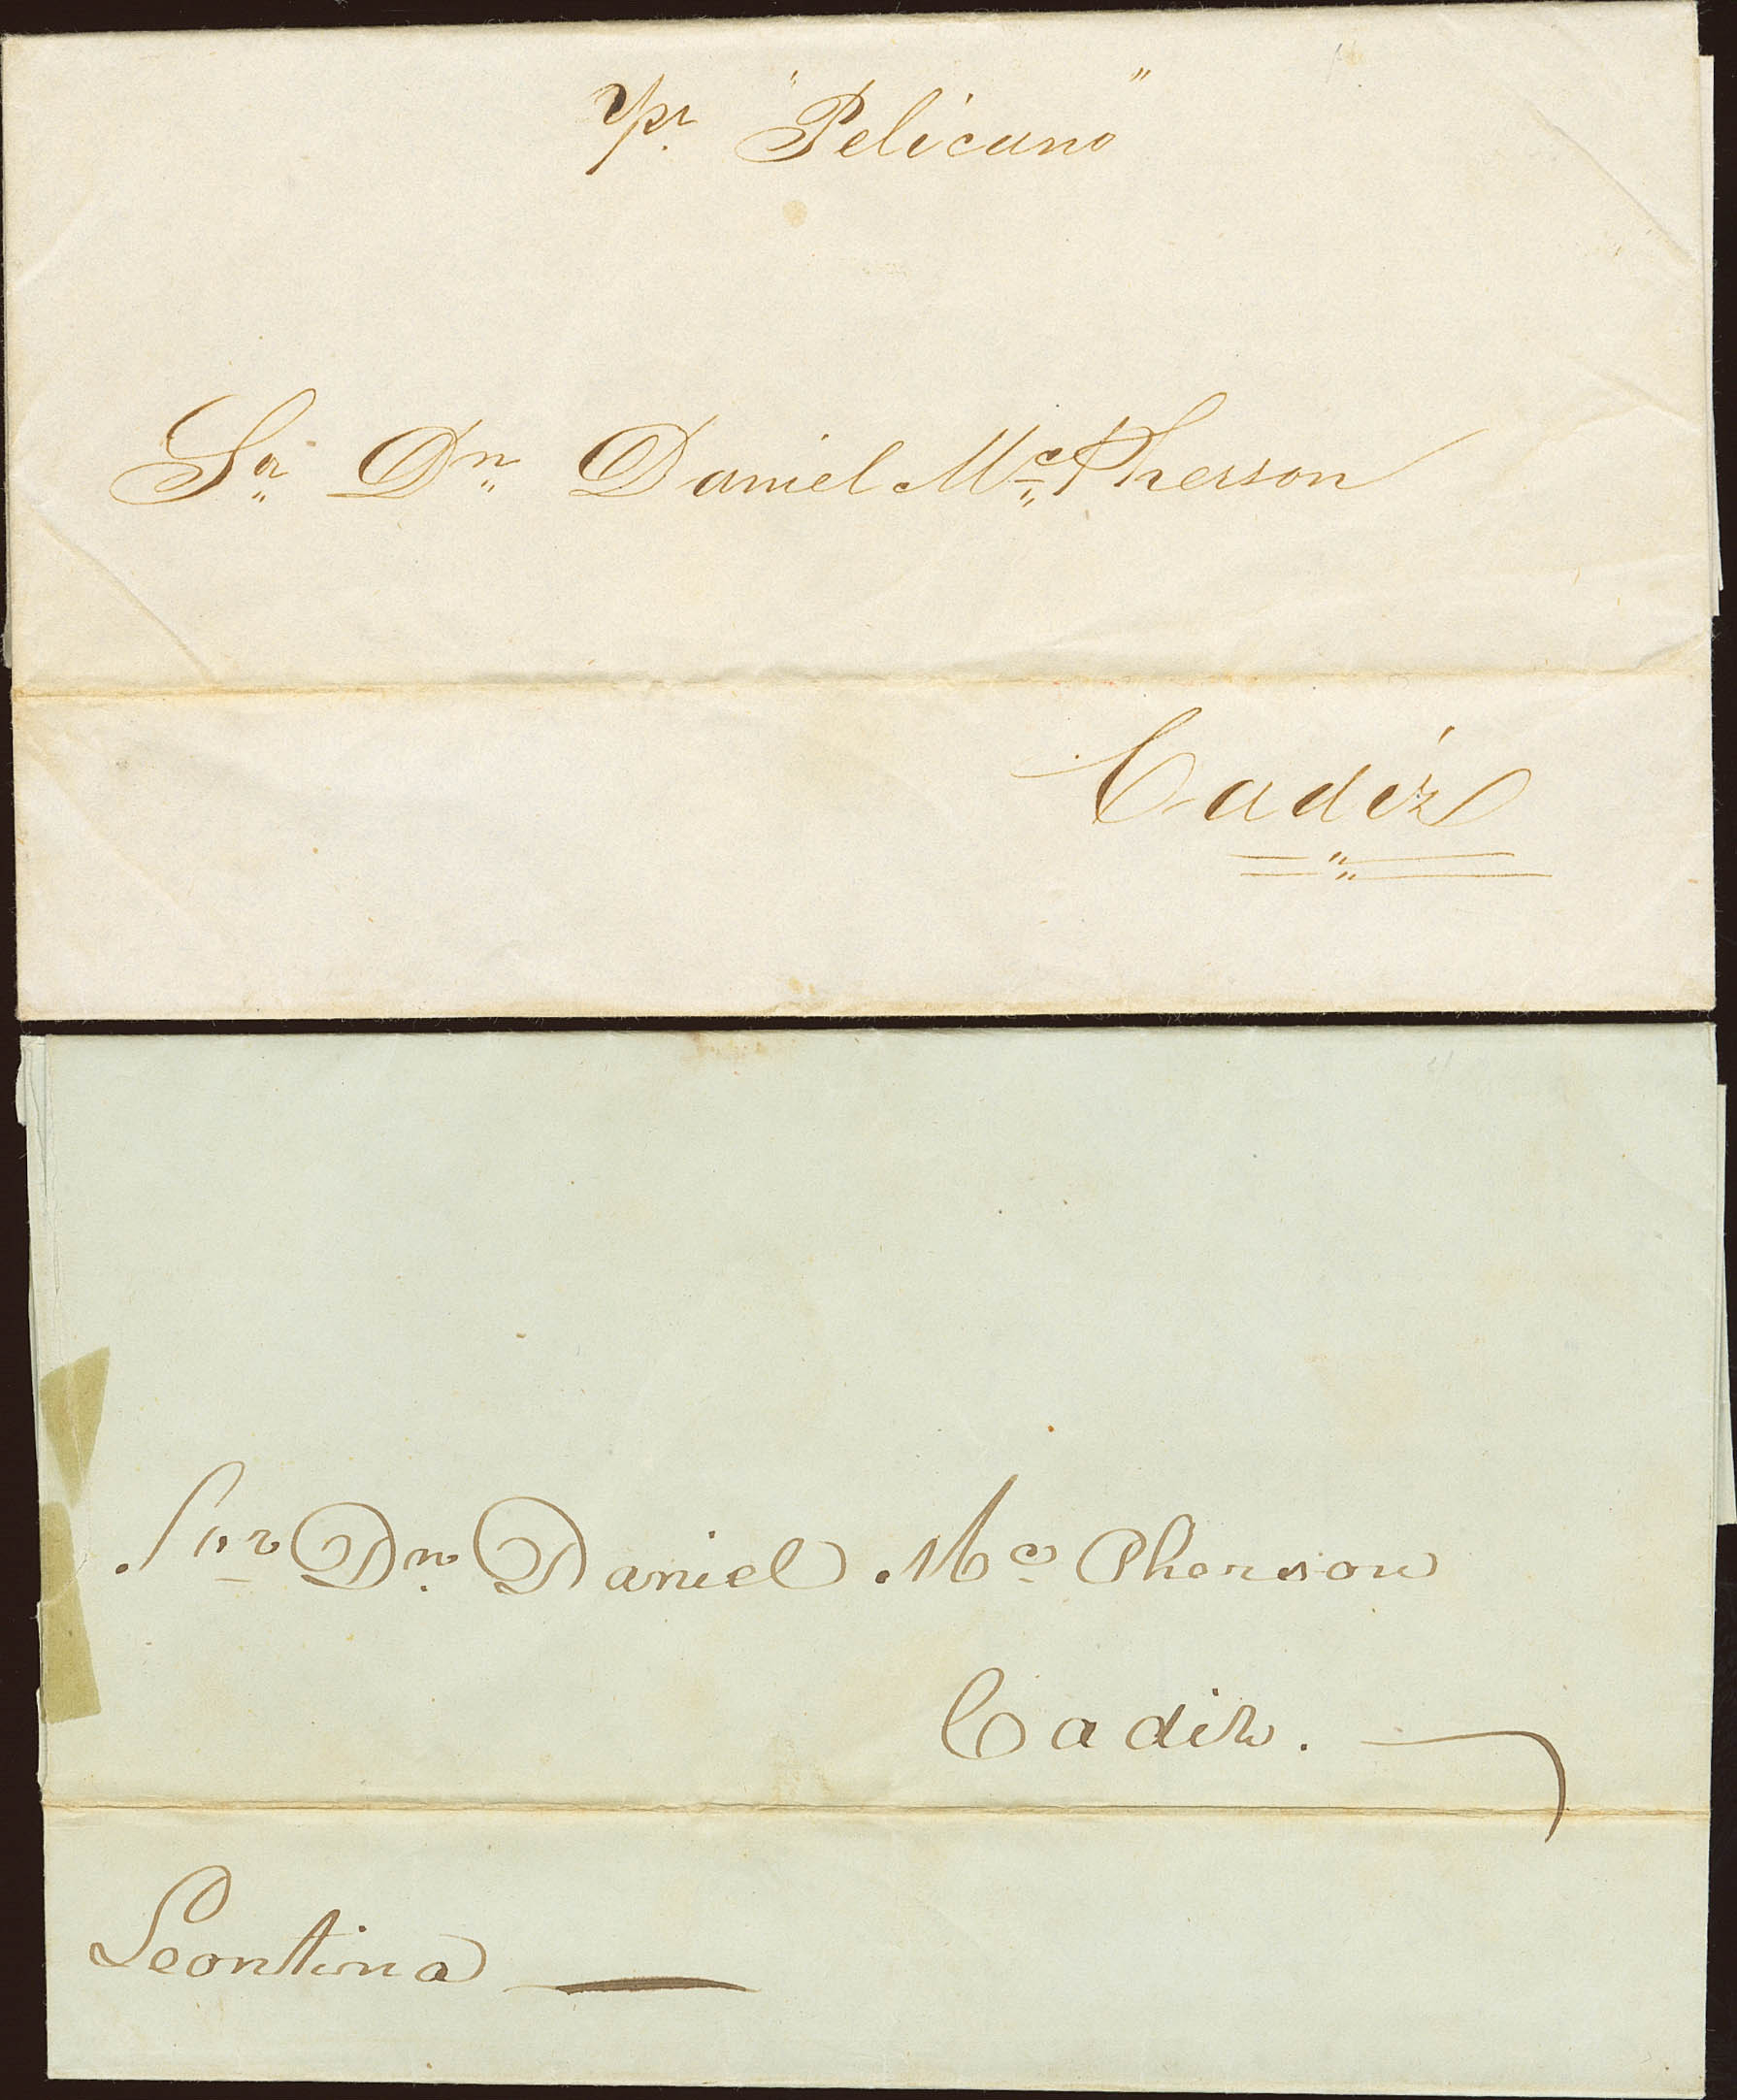 pr. "Pelicano"
Sr. Dn. Daniel Mc. Pherson
Cadiz
Snr Dn. Daniel Mc Pherson
Cadiz.
Leontina